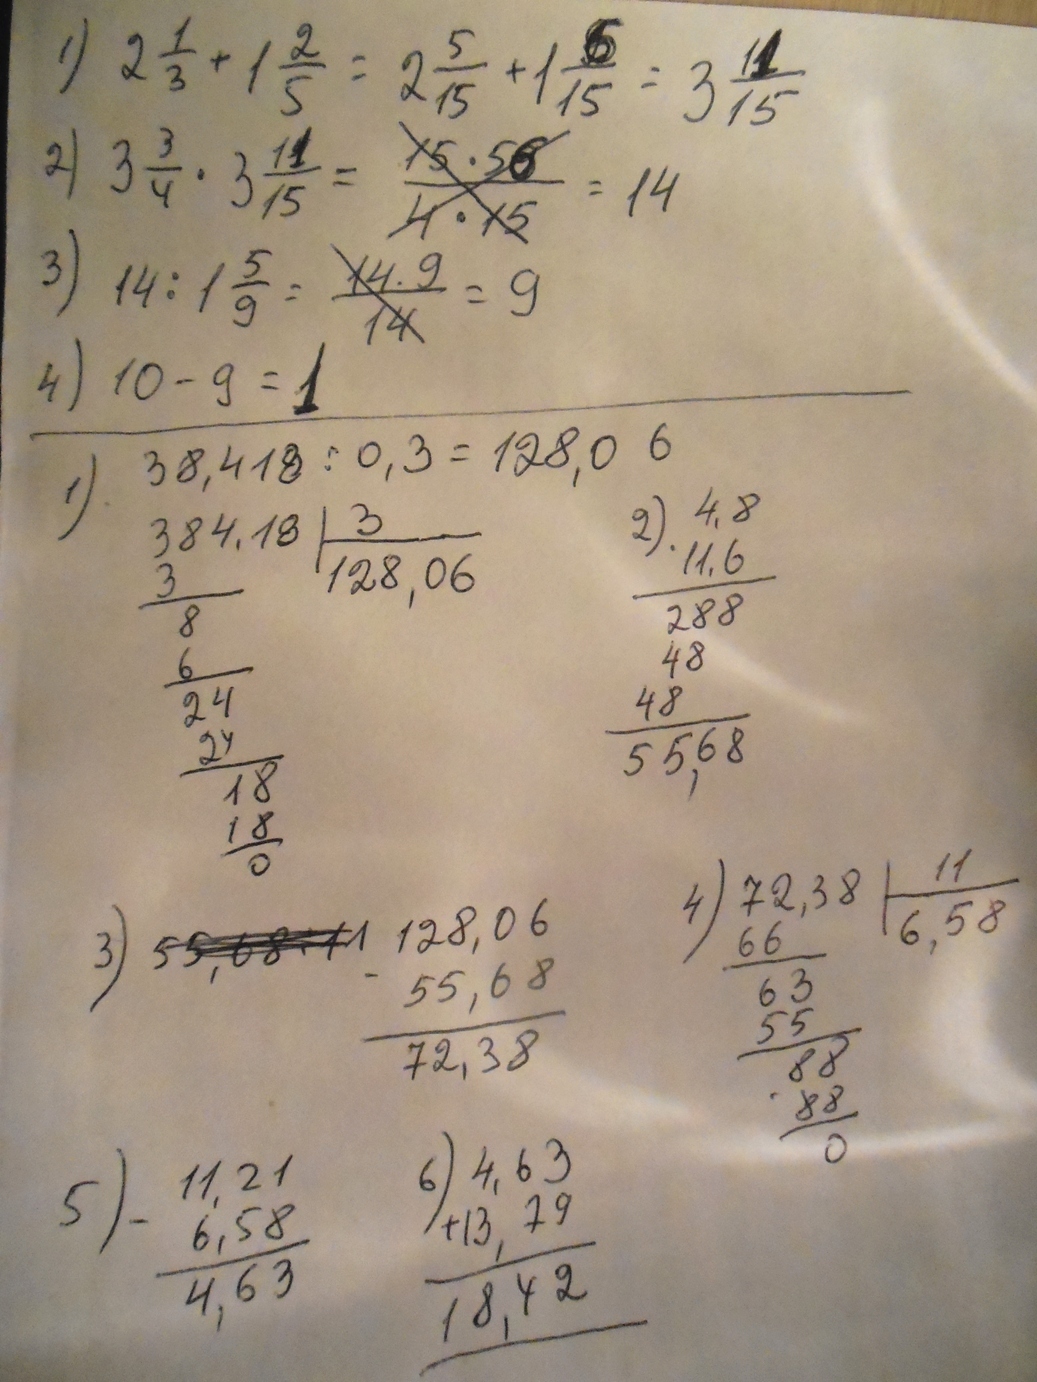 1) 2 1/3 + 1 2/5 = 2 5/15 + 1 6/15 = 3 11/15
2) 3 3/4 · 3 11/15 = 15·56/4·15 = 14
3) 14 : 1 5/9 = 14·9/14 = 9
4) 10 - 9 = 1
1) 38,418 : 0,3 = 128,06
384,18 | 3
3 128,06
8
6
24
24
18
18
0
2) · 4,8
11,6
288
48
48
55,68
3) 55,68:11 128,06
- 55,68
72,38
4) 72,38 | 11
66 6,58
63
55
88
88
0
5) - 11,21
6,58
4,63
6) 4,63
+13,79
18,42